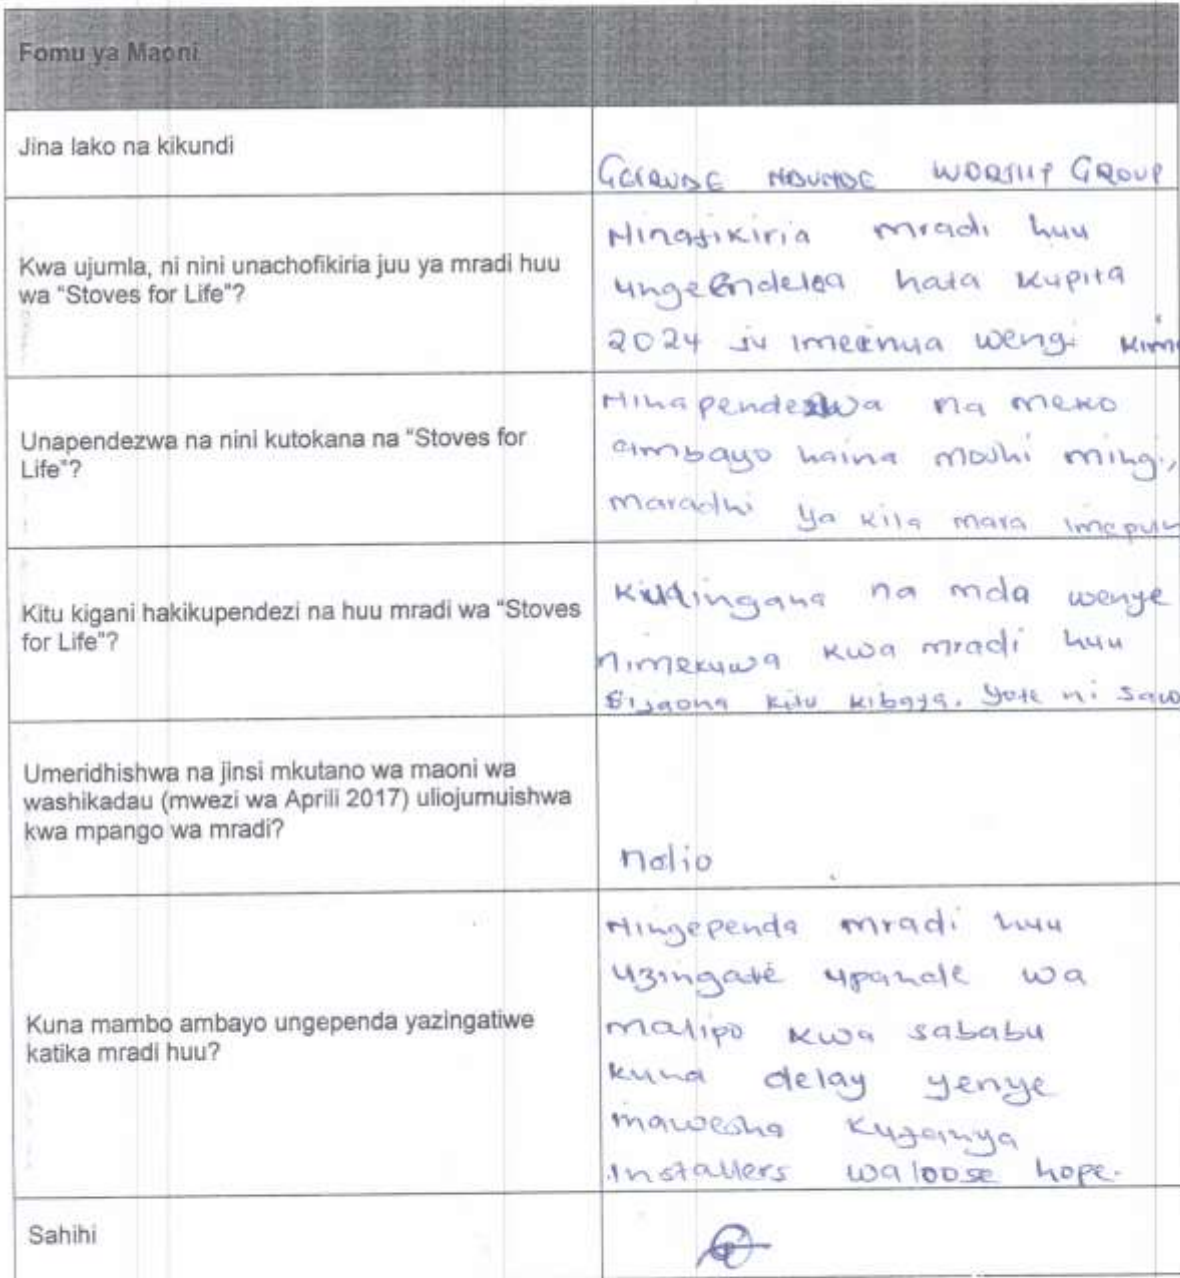 Fomu ya Maoni
Jina lako na kikundi
WORSHIP GROUP
Kwa ujumla, ni nini unachofikiria juu ya mradi huu
wa "Stoves for Life"?
Ninafikiria mradi huu
ungeendelea hata kupita
2024 ju imeinua wengi
Unapendezwa na nini kutokana na "Stoves for
Life"?
Ninapendezwa na meko
ambayo haina moshi mingi,
maradhi ya kila mara
Kitu kigani hakikupendezi na huu mradi wa "Stoves
for Life"?
Kulingana na mda wenye
nimekuwa kwa mradi huu
Sijaona kitu kibaya. yote ni
Umeridhishwa na jinsi mkutano wa maoni wa
washikadau (mwezi wa Aprili 2017) uliojumuishwa
kwa mpango wa mradi?
ndio
Kuna mambo ambayo ungependa yazingatiwe
katika mradi huu?
Ningependa mradi huu
uzingate upande wa
malipo kwa sababu
kuna delay yenye
Installers waloose hope.
Sahihi